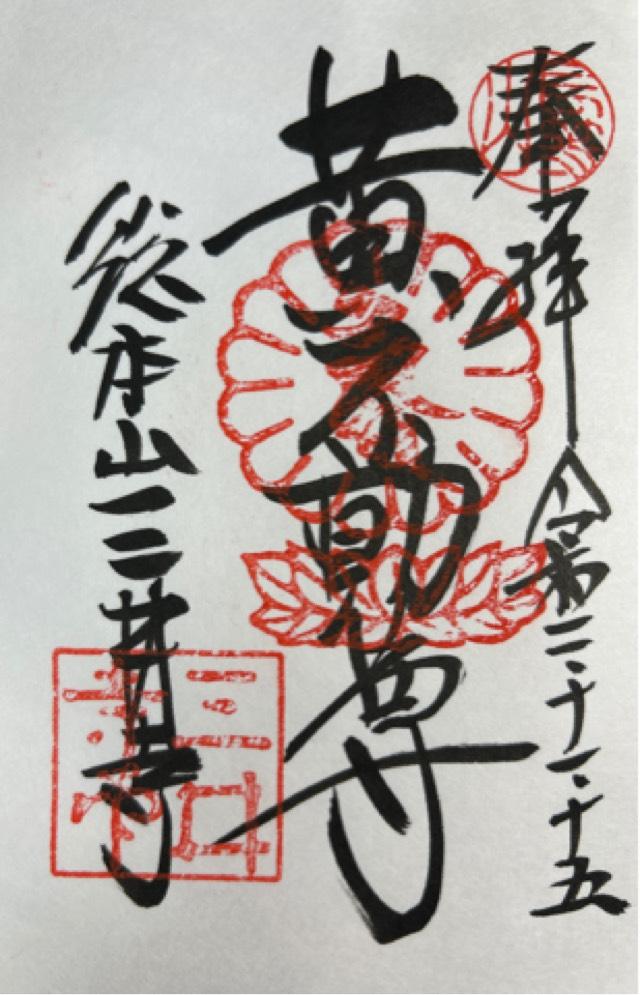 奉拝 令和二・十一・十五
黄不動尊
総本山三井寺